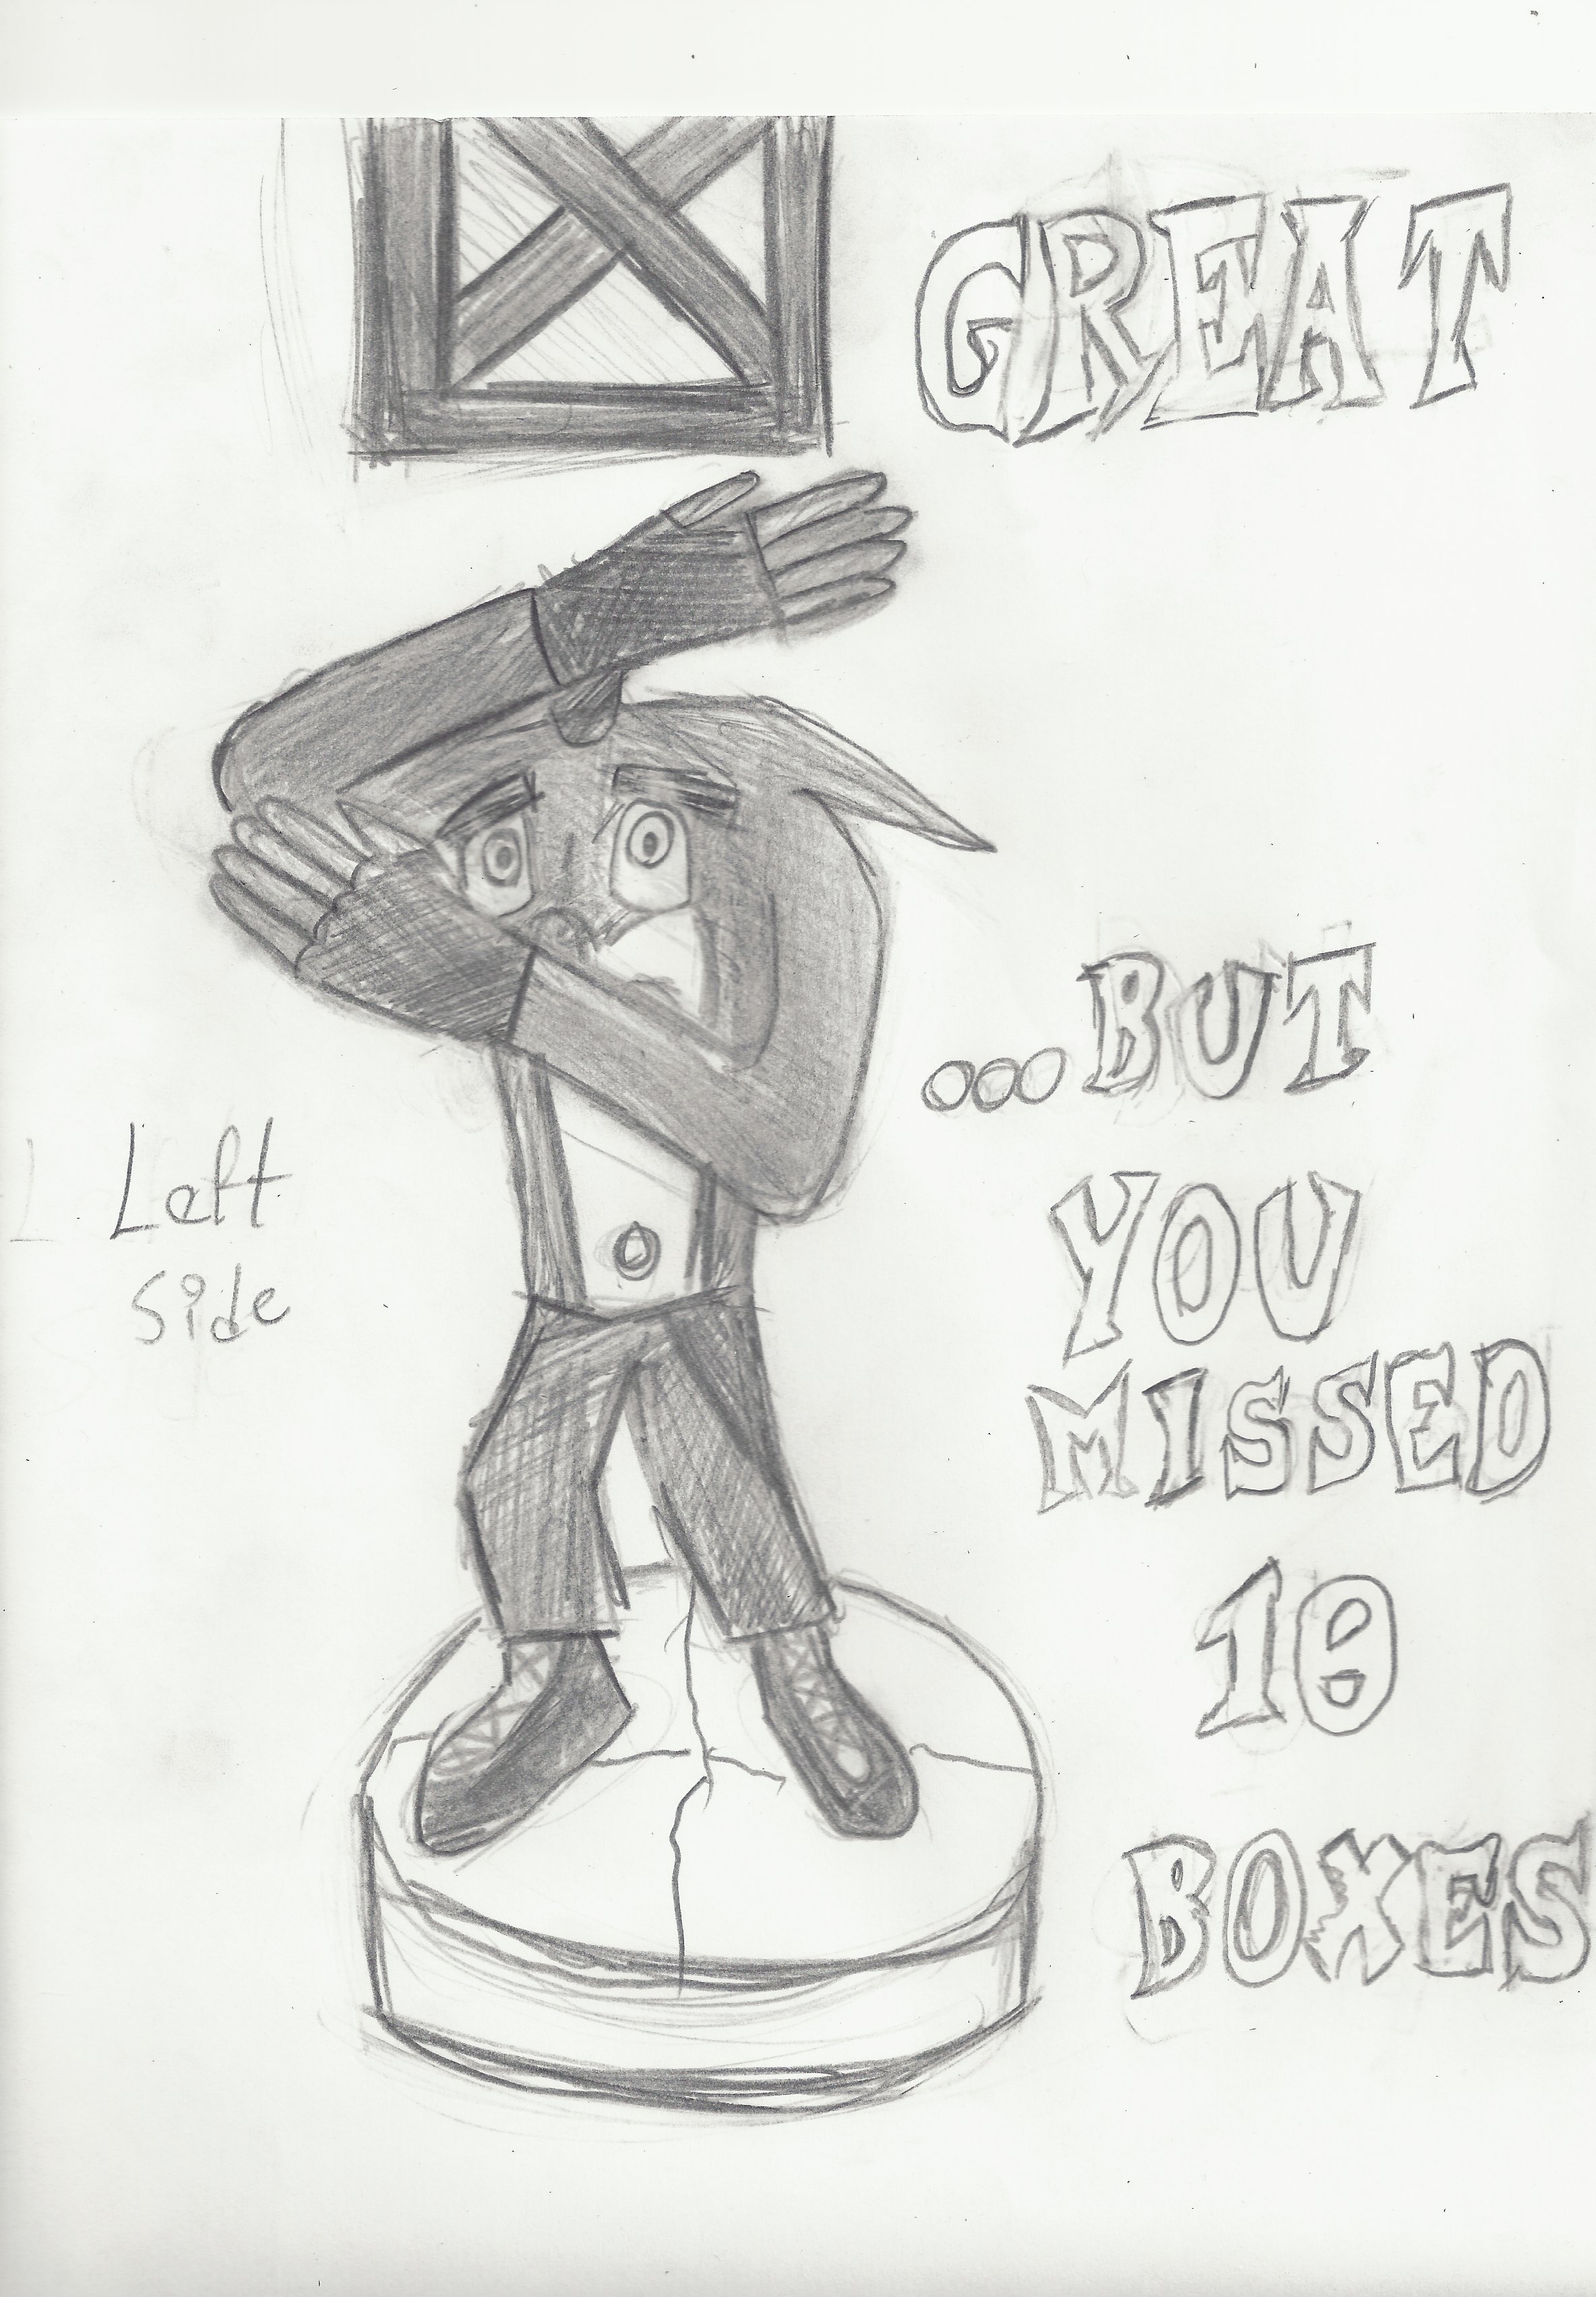 GREAT
...BUT
YOU
MISSED
10
BOXES
Left
Side